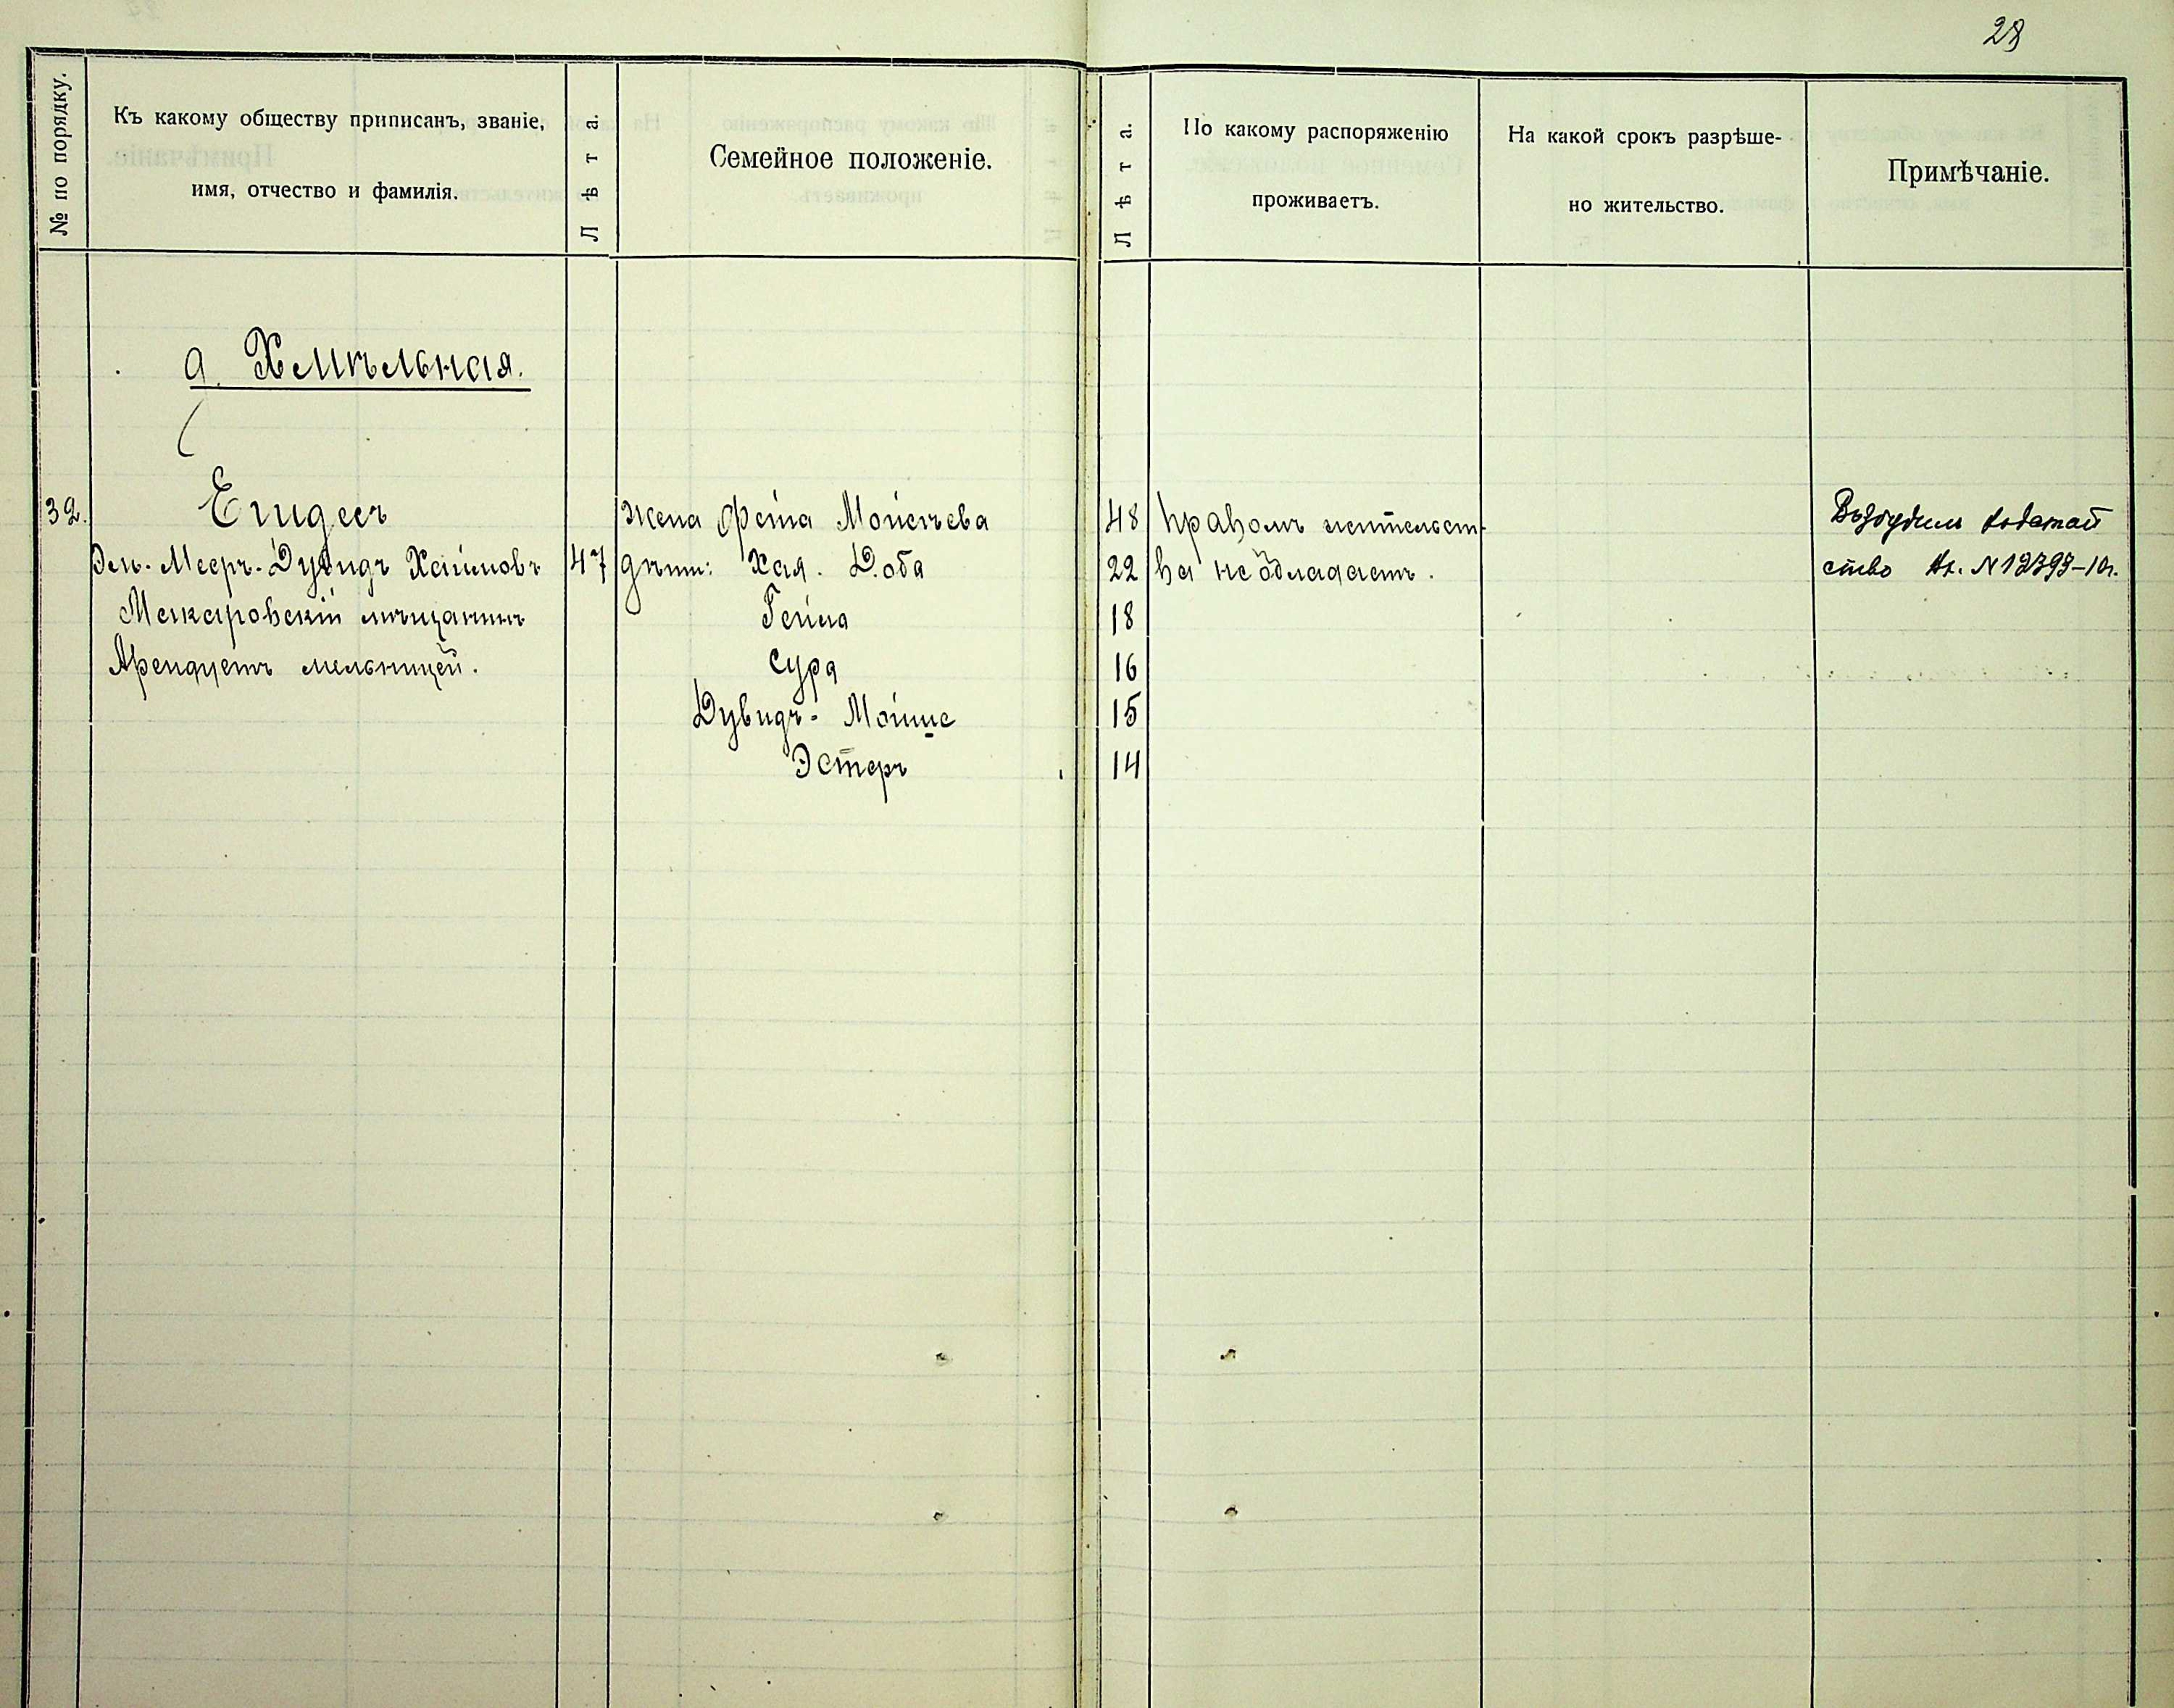 28
№ по порядку.
Къ какому обществу приписанъ, званіе,
имя, отчество и фамилія.
Лѣта.
Семейное положеніе.
Лѣта.
По какому распоряженію
проживаетъ.
На какой срокъ разрѣше-
но жительство.
Примѣчаніе.
д. Хмѣльная.
32.
Меер-Дувидъ Хаимовъ
Макаровскій мѣщанинъ
Арендуетъ мельницей.
47
Жена Фейга Моисеева
дѣти: Хая. Доба
Гейла
Сура
Дувидъ-Мойше
Эстеръ
48
22
18
16
15
14
Правомъ жительст-
ва не обладаетъ.
Возбудилъ ходатай
ство Ар. №12393-10г.